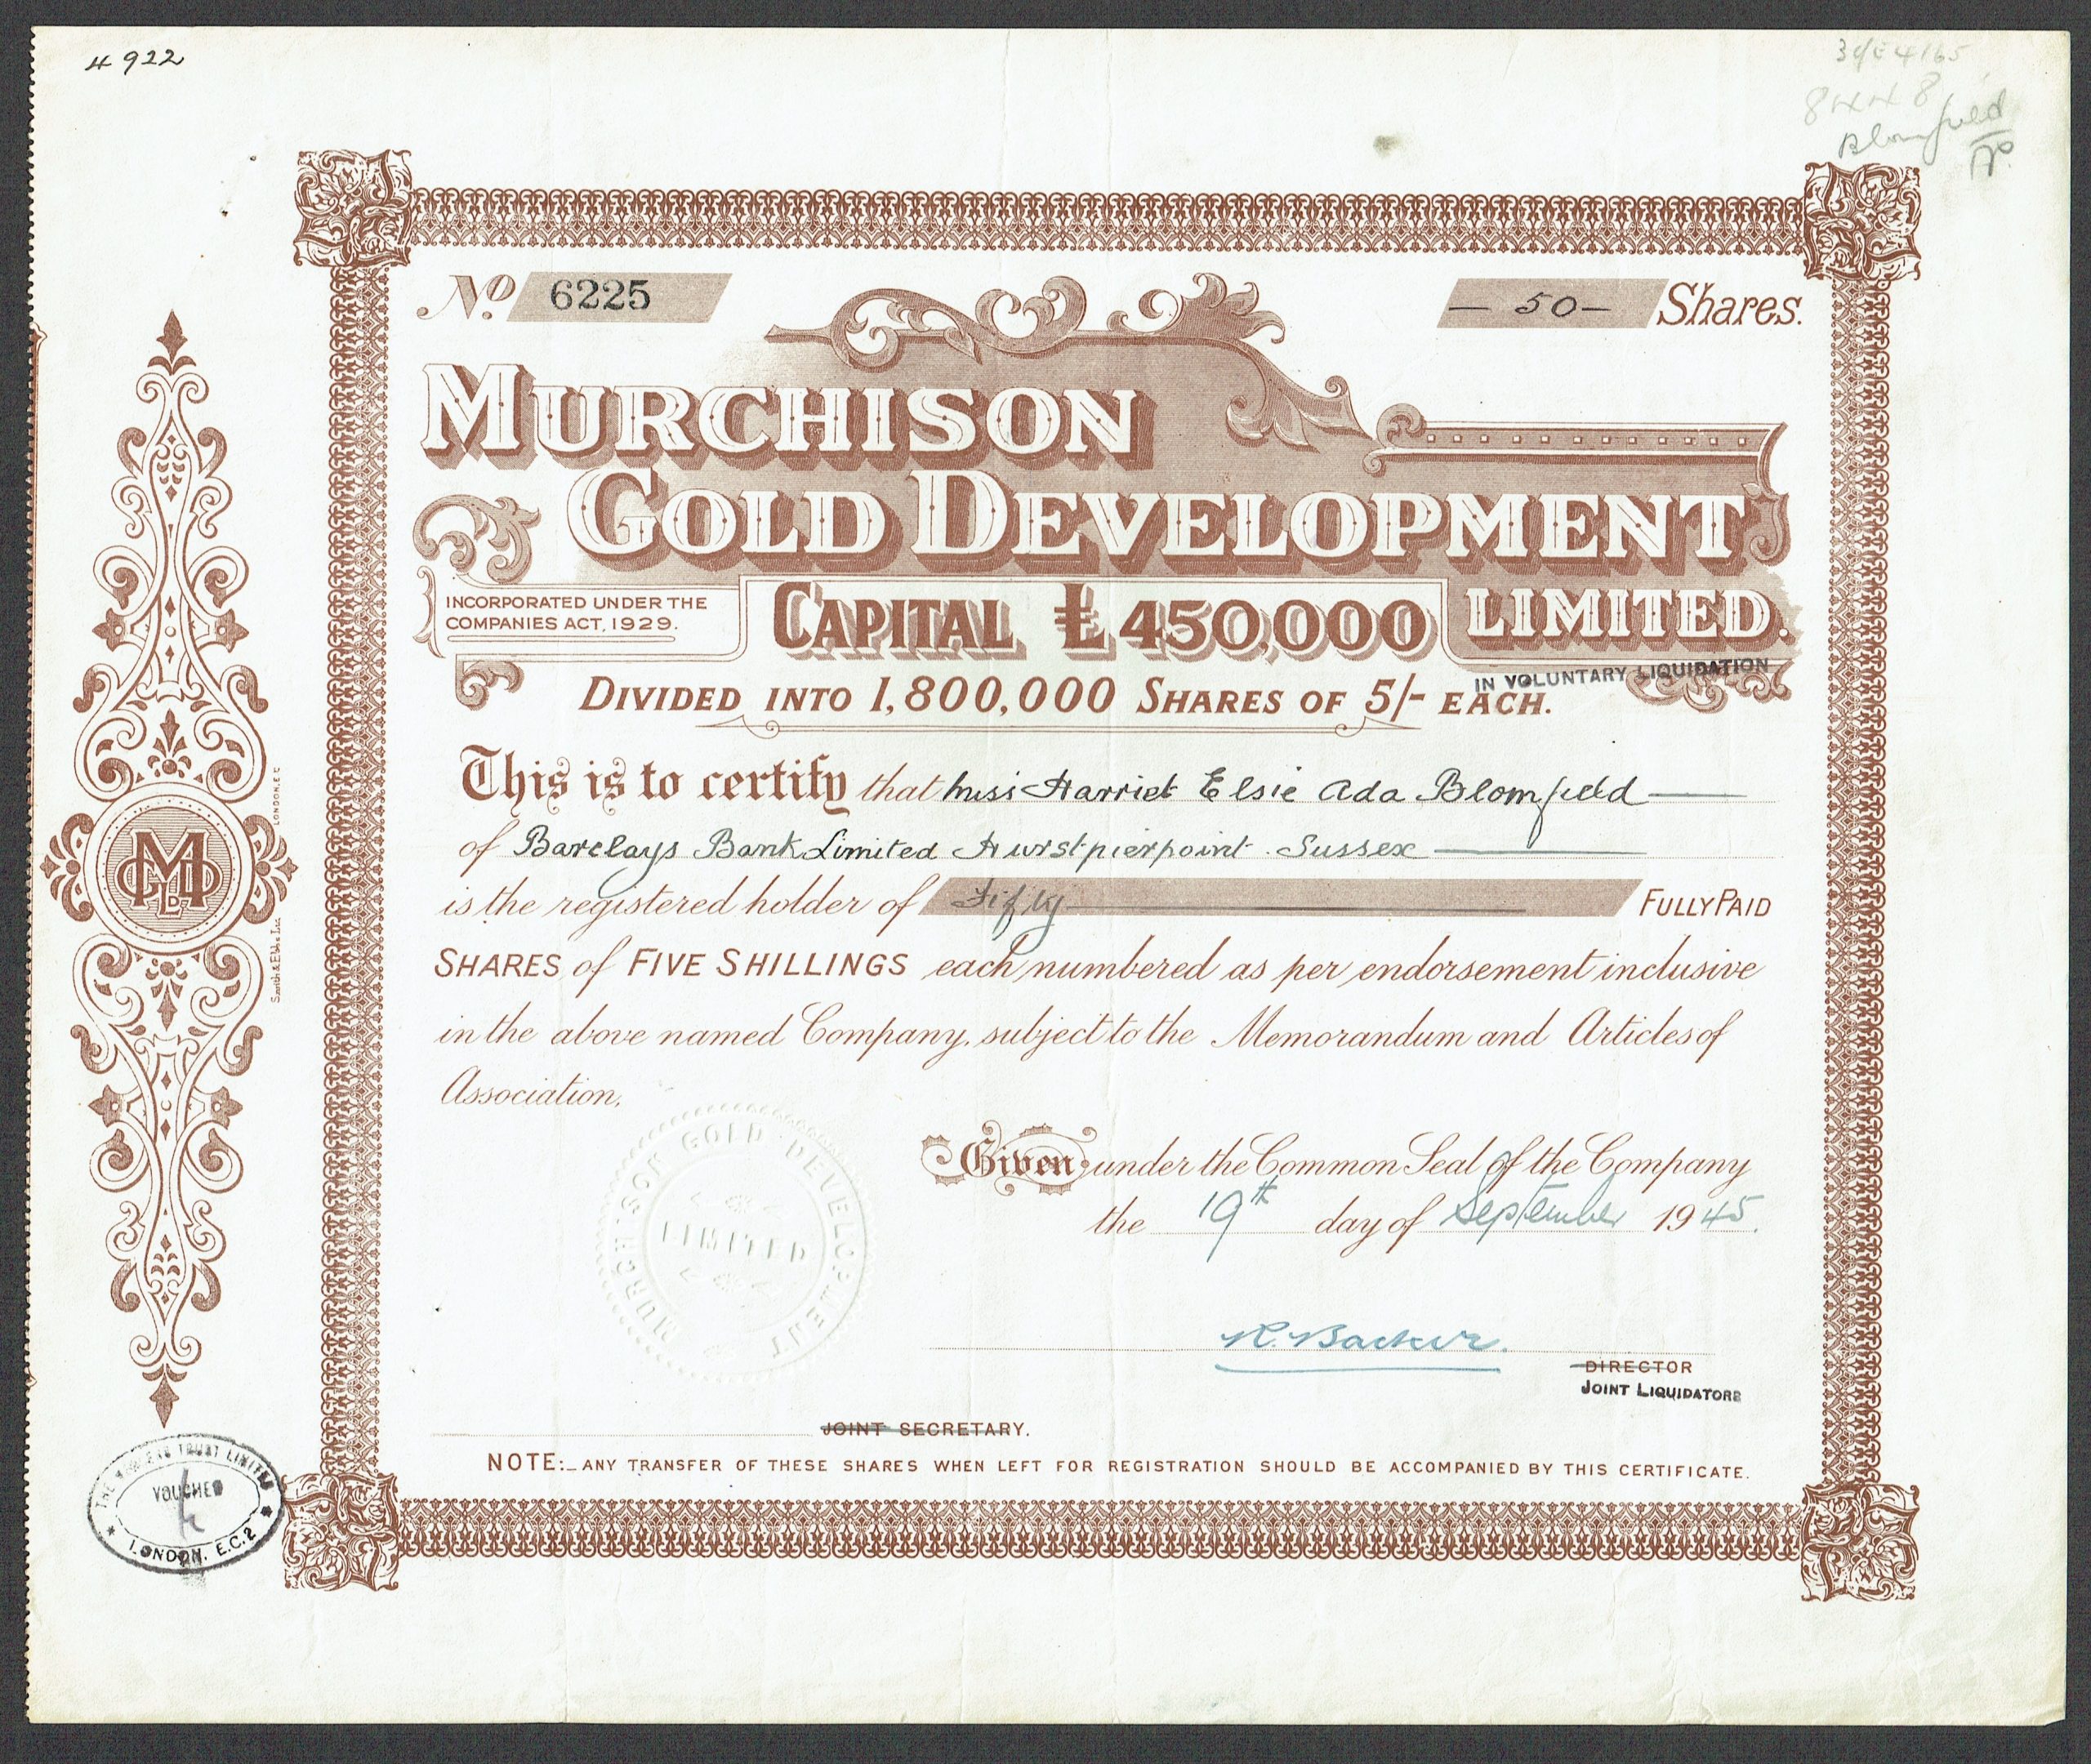 4922
8448
Blomfield
No. 6225
— 50 — Shares.
MURCHISON
GOLD DEVELOPMENT
LIMITED.
INCORPORATED UNDER THE
COMPANIES ACT, 1929.
CAPITAL £450,000
IN VOLUNTARY LIQUIDATION
DIVIDED INTO 1,800,000 SHARES OF 5/- EACH.
This is to certify that Miss Harriet Elsie Ada Blomfield
of Barclays Bank Limited Hurstpierpoint. Sussex
is the registered holder of Fifty FULLY PAID
SHARES of FIVE SHILLINGS each numbered as per endorsement inclusive
in the above named Company, subject to the Memorandum and Articles of
Association.
Given under the Common Seal of the Company
the 19th day of September 1945.
MURCHISON GOLD DEVELOPMENT
LIMITED
R. Barker.
DIRECTOR
JOINT LIQUIDATORS
JOINT SECRETARY.
NOTE:- ANY TRANSFER OF THESE SHARES WHEN LEFT FOR REGISTRATION SHOULD BE ACCOMPANIED BY THIS CERTIFICATE.
MGD LD
LONDON, E.C.
TRUST LIMITED
VOUCHED
LONDON. E.C.2